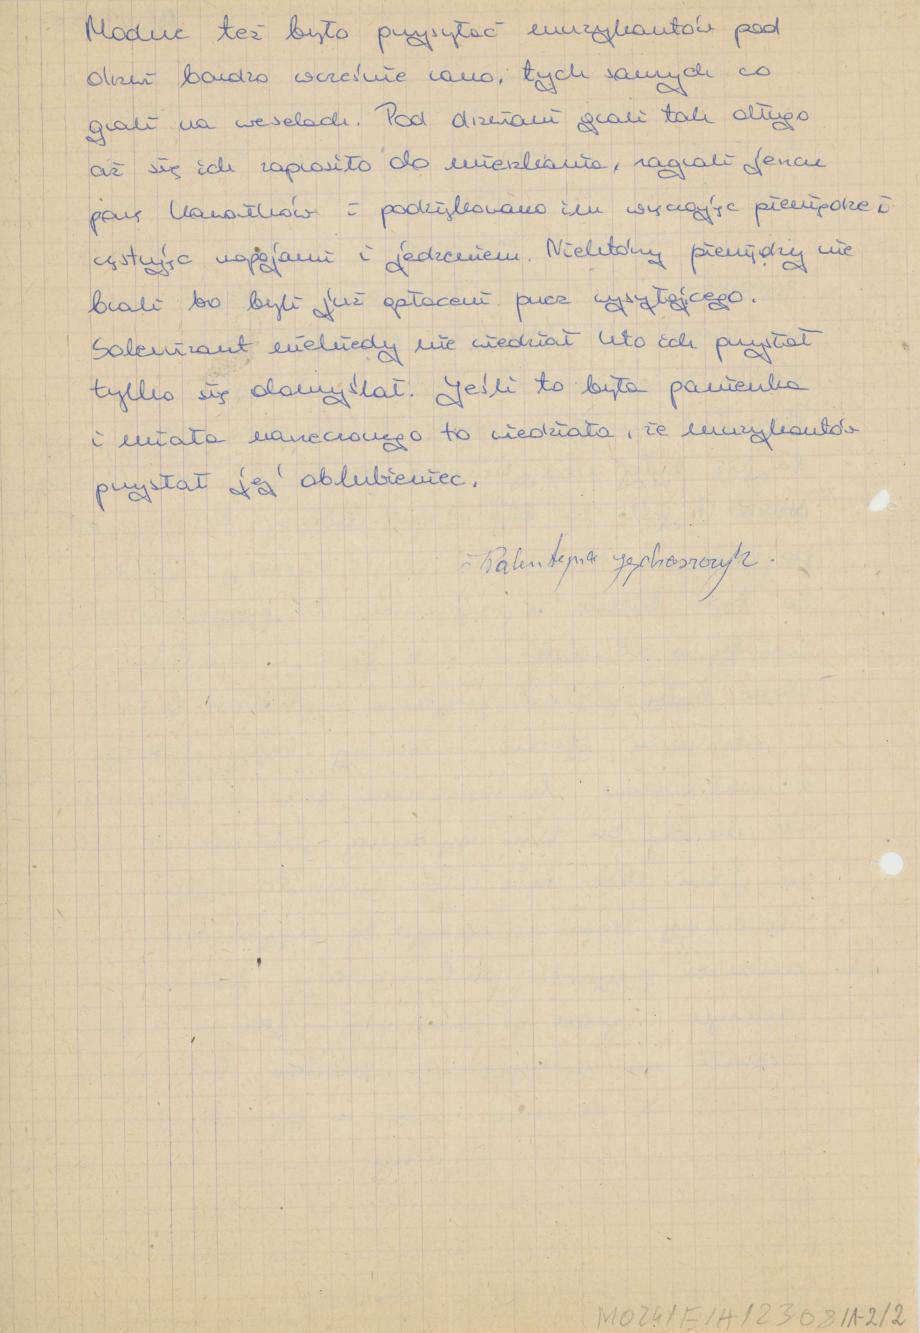 Modne też było przysyłać muzykantów pod
drzwi bardzo wcześnie rano, tych samych co
grali na weselach. Pod drzwiami grali tak długo
aż się ich zaprosiło do mieszkania, zagrali jeszcze
parę kawałków i podziękowano im wręczając pieniądze i
częstując napojami i jedzeniem. Niektórzy pieniędzy nie
brali bo byli już opłaceni przez wysyłającego.
Solenizant niekiedy nie wiedział kto ich przysłał
tylko się domyślał. Jeśli to była panienka
i miała narzeczonego to wiedziała, że muzykantów
przysłał jej oblubieniec.
MOZG/E/A/2308/1-2/2